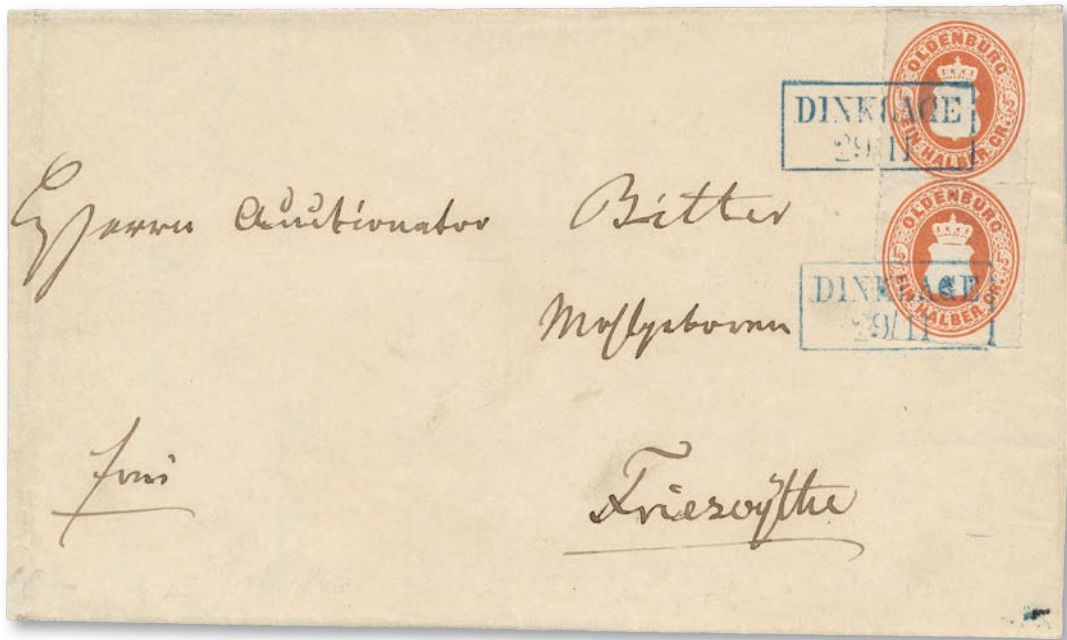 OLDENBURG
5 5
EIN HALBER GR.
DINKLAGE
29/11
OLDENBURG
5 5
EIN HALBER GR.
DINKLAGE
29/11
Herrn Auctionator Bitter
Wohlgeboren
frei
Friesoythe